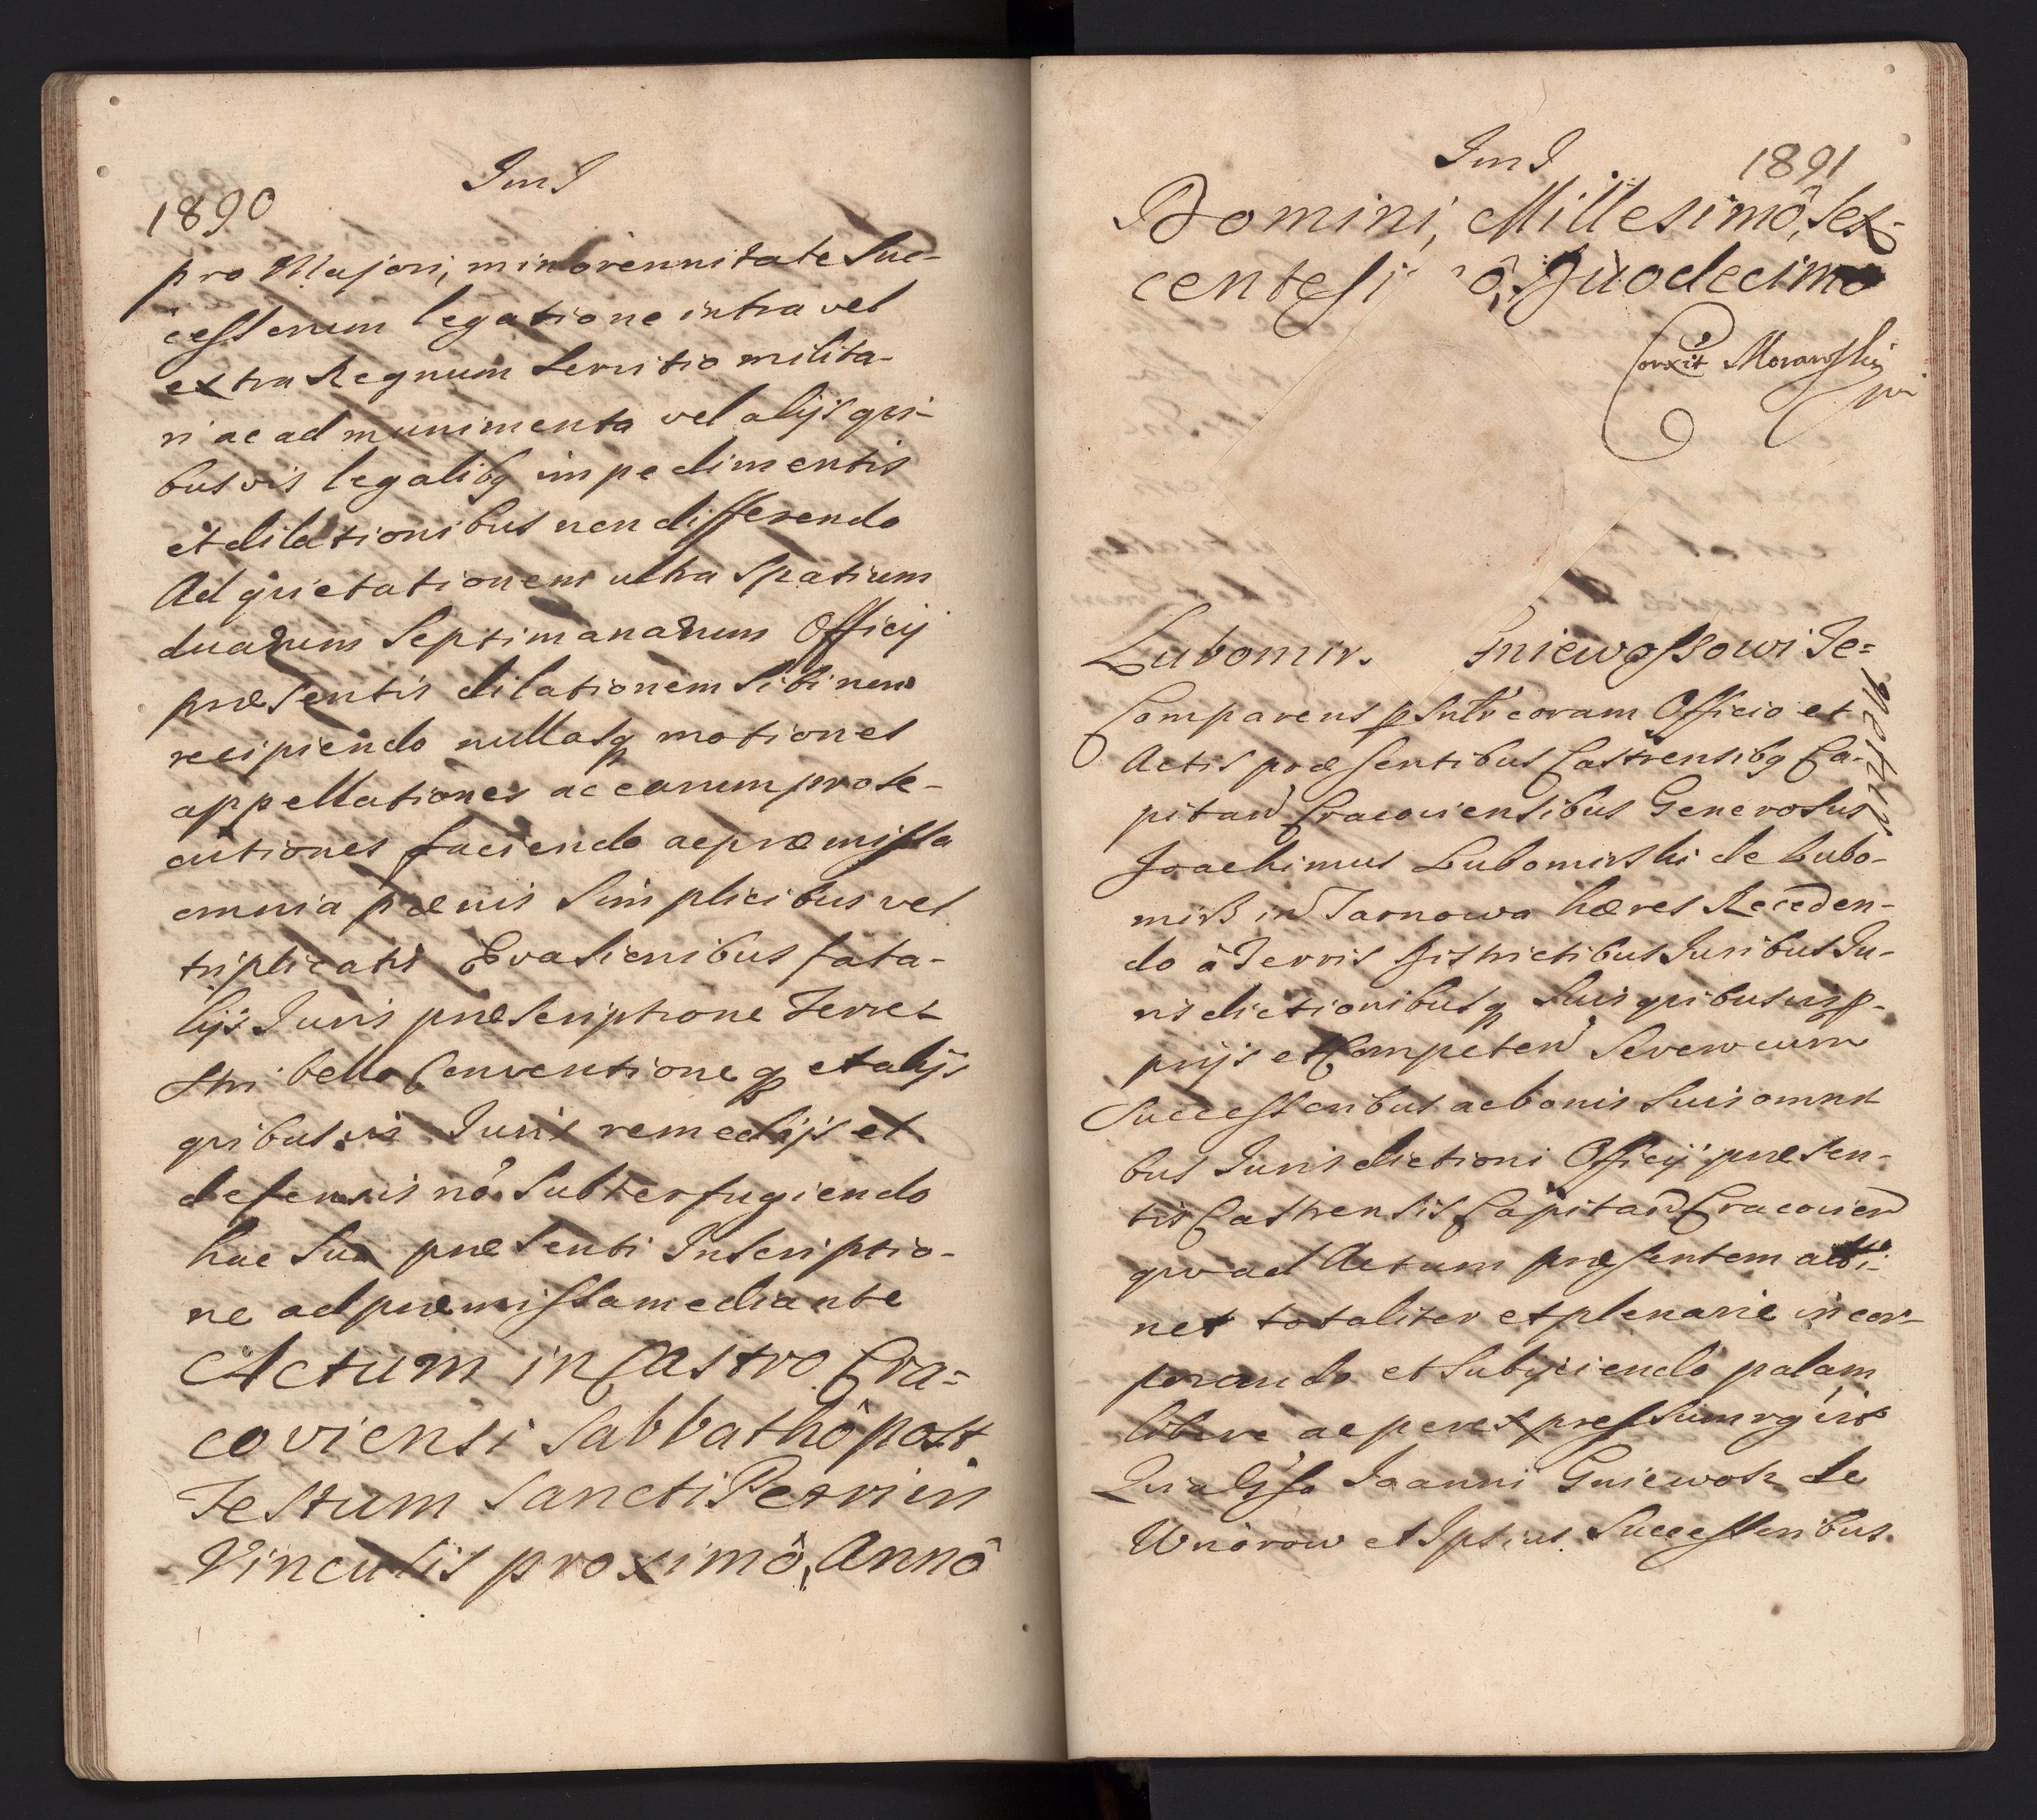 1890
Im I
pro Majori, minorennitate Suc-
cessorum legatione intra vel
extra Regnum Servitio milita-
ri ac ad munimenta vel alijs qui-
busvis legalibq impedimentis
et dilationibus non differendo
Ad quietationem ultra Spatium
duarum Septimanarum Officij
præsentis dilationem Sibi non
recipiendo nullasq motiones
appellationes ac earum prose-
cutiones faciendo ac præmissa
omnia pænis Simplicibus vel
triplicatis Evasionibus fata-
lijs Juris præscriptione Terre-
stri bello Conventioneq et alijs
quibusvis Juris remedijs et
defensis nõ Subterfugiendo
hac Sua præsenti Inscriptio-
ne ad præmissa mediante
Actum in Castro Cra=
coviensi Sabbathô post
Festum Sancti Petri in
Vinculis proximô, Annô
Im I
1891
Domini, Millesimô, Sex-
centesi ô, Duodecimo
Corxit Morawski
Lubomir. Gniewossowi Te=
netur
Comparens psntr coram Officio et
Actis præsentibus Castrensibq Ca-
pitan Cracoviensibus Generosus
Joachimus Lubomirski de Lubo-
mirz in Tarnowa hæres Receden-
do â Terris Districtibus Juribus Ju-
risdictionibusq Suis quibusvis p-
prijs et Competen Se vero cum
Successoribus ac bonis Suis omni-
bus Jurisdictioni Officij præsen-
tis Castrensis Capitan Cracovien
quo ad Actum præsentem atti-
net totaliter et plenarie incor-
porando et Subijciendo palam
libere ac per expressum
Quia Joanni Gniewosz de
Unorow et Ipsius Successoribus